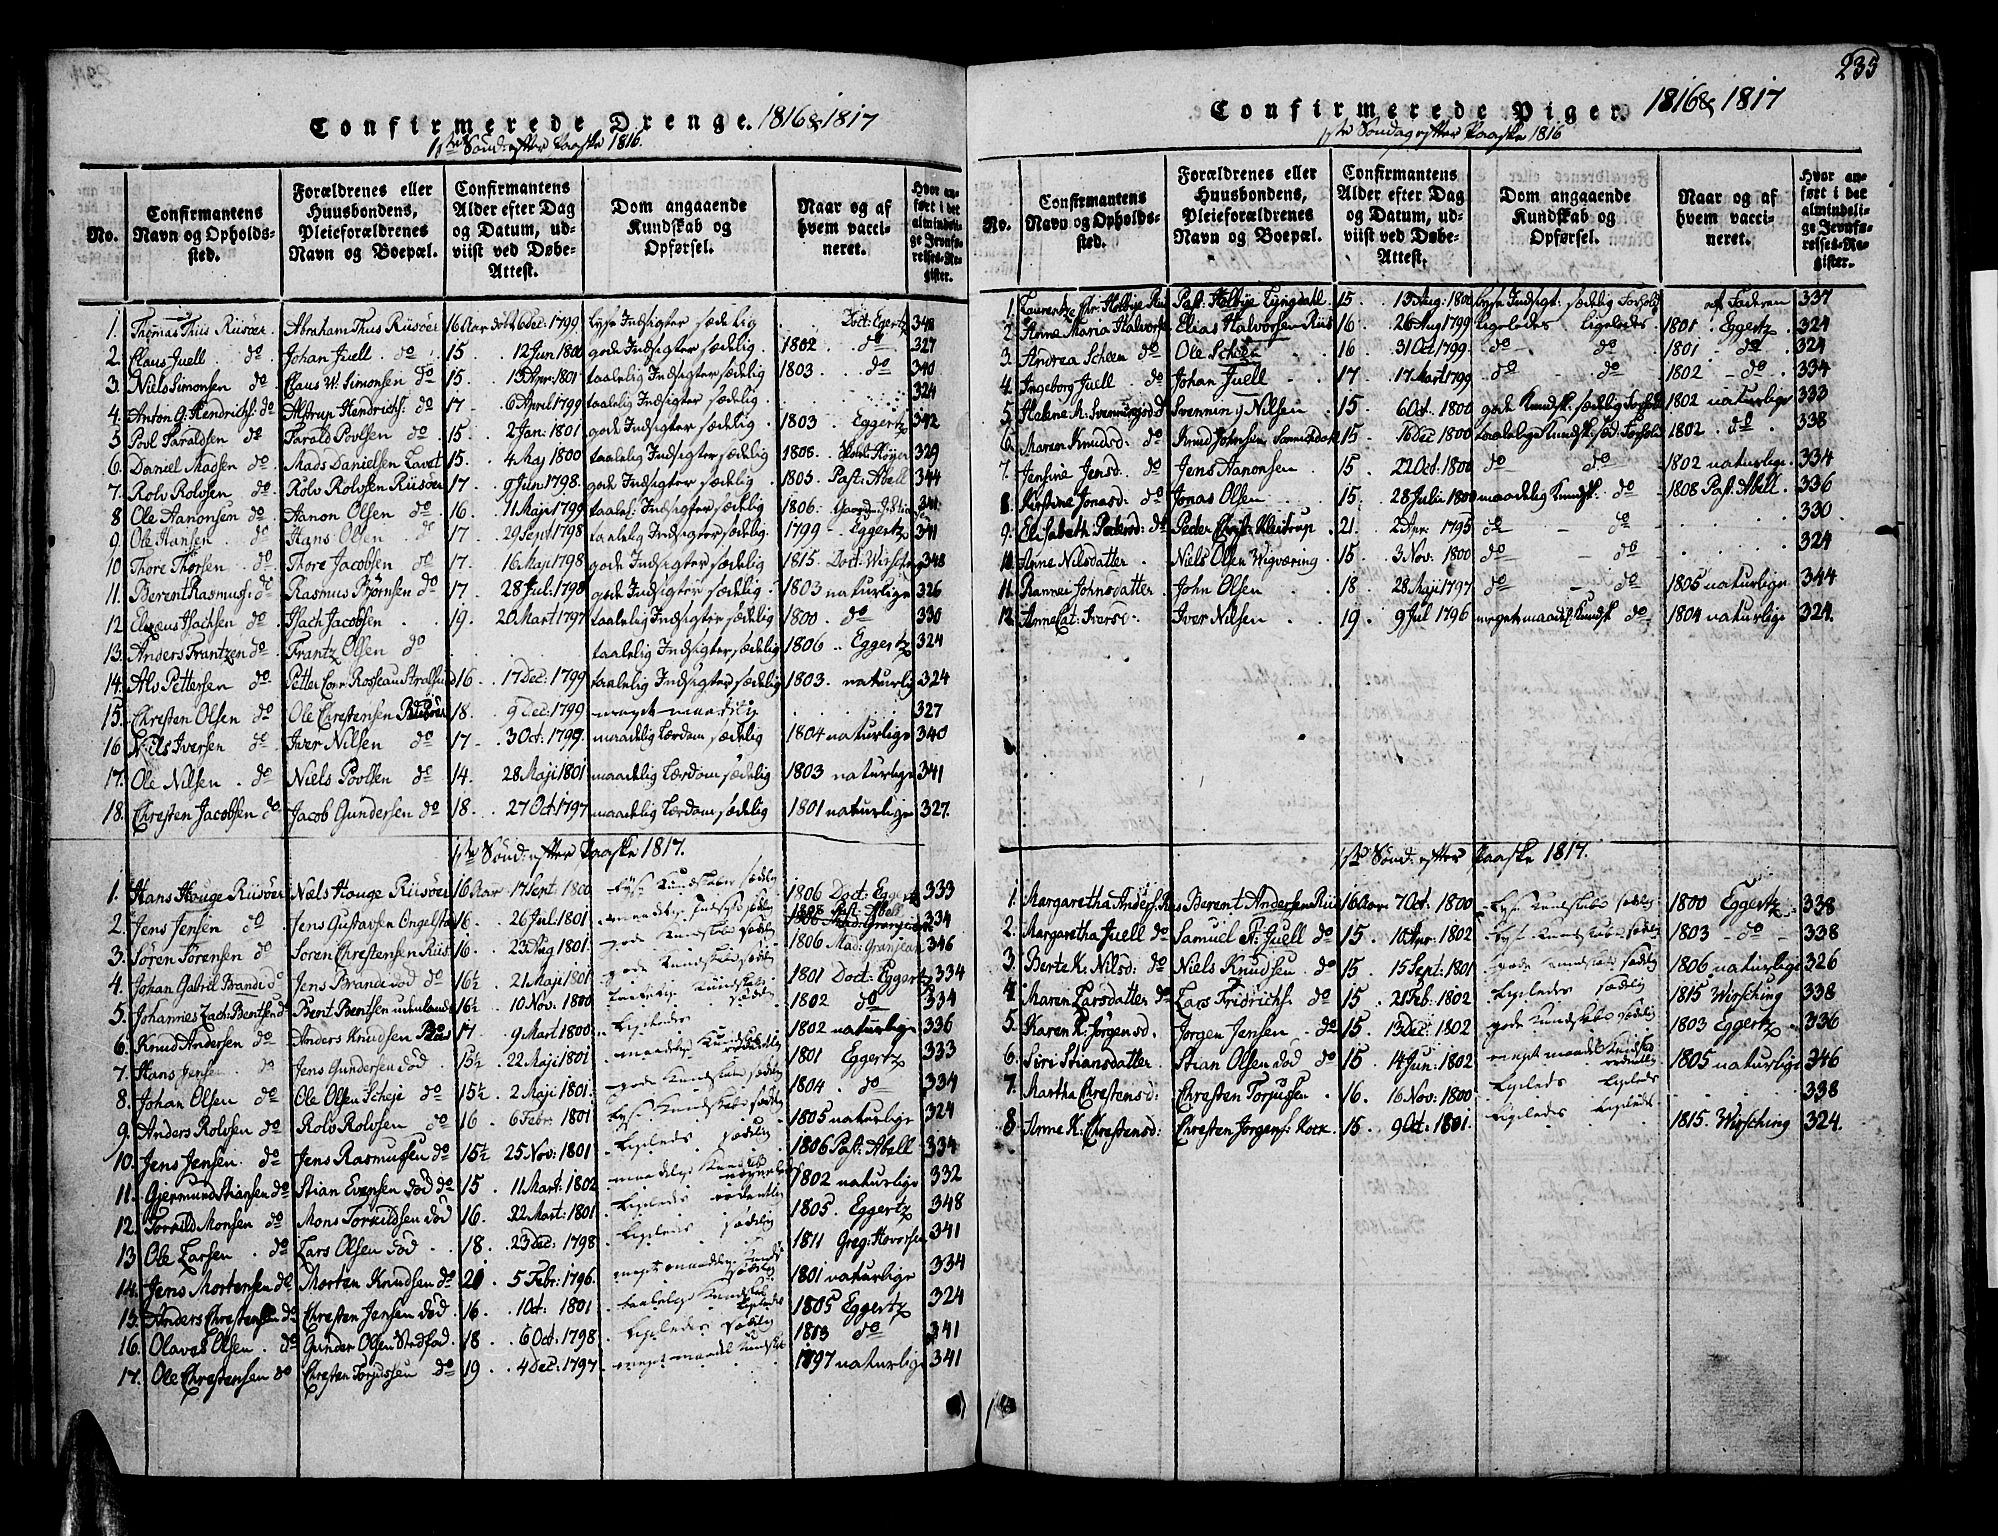 Confirmerede Drenge. 1816 & 1817
1ste Sønd: efter Paaske 1816.
No.
Confirmantens Navn og Opholds-sted.
Forældrenes eller Huusbondens, Pleieforældrenes Navn og Boepæl.
Confirmantens Alder efter Dag og Datum, ud-viist ved Døbe-Attest.
Dom angaaende Kundskab og Opførsel.
Naar og af hvem vacci-neret.
Hvor an-ført i det almindeli-ge Jevnfø-relses-Re-gister.
1. Thomas Thus Riisöer Abraham Thus Riisöer 16 Aar 6 Dec. 1799 lyse Indsigter sædelig Doct: Egertz 348
2 Claus Juell . do Johan Juell . do 15 12 Jun 1800 gode Indsigter sædelig 1802 do 327
3. Niels Simonsen do Claus W. Simonsen do 15. 13 Apr: 1801 taalelig Indsigter sædelig 1803. do 340
4. Anton G. Hendrichs: do Alstrup Hendrichs: do 17 6 April 1799 taalelig Indsigter sædelig 324
5 Povl Taraldsen do Tarald Povlsen do 15. 2 Jan: 1801 gode Indsigter sædelig 1803 Eggertz 342
6. Daniel Madsen do Mads Danielsen 15. 4 Maj 1800 taalelig Indsigter sædelig 1808. 329
7. Rolv Rolvsen do Rolv Rolvsen Riisöer 17 9 Jun 1798. gode Indsigter sædelig 1805 Past: Abell 344
8 Ole Aanonsen do Aanon Olsen do 16 11 Maji 1799 taalel: Indsigter sædelig 1806. 341
9. Ole Hansen do Hans Olsen do 17 29 Sept 1798 taalelig Indsigter sædelig 1799 - Eggertz 341
10 Thore Thorsen do Thore Jacobsen do 17. 16 Maji 1798 gode Indsigter sædelig 1815. Doct: Wirsching 348
11. Berent Rasmus: do Rasmus Biørnsen do 17. 28 Jul: 1798 gode Indsigter sædelig 1803 naturlige 326
12 Isachsen do Isach Jacobsen 19. 20 Mart 1797 taalelig Indsigter sædelig 1800. do 330
13. Anders Frantzen do Frantz Olsen do taalelig Indsigter sædelig 1806 Eggertz 324
14. Alv Pettersen do Petter 16 17 Dec: 1799 taalelig Indsigter sædelig 1803. naturlig 324
15. Chresten Olsen do Ole Chrestensen Riisöer 18. 9 Dec: 1799 meget maadelig 327
16 Niels Iversen do Iver Nilsen do 17 3 Oct: 1799. maadelig Lærdom sædelig 1804 naturlige 340
17. Ole Nilsen . do Niels Povlsen do 14. 28 Maji 1801 maadelig Lærdom sædelig 1803 naturlige 341
18. Chresten Jacobsen do Jacob Gundersen do 18. 27 Oct 1797 maadelig Lærdom sædelig 1801 naturlige 327.
1ste Sønd: efter Paaske 1817.
1. Hans Houge Riisöer Niels Houge Riisöer 16 Aar 17 Sept: 1800 lyse Kundskaber sædelig 1806 Doct: Eggertz 333
2. Jens Jensen do Jens Gustavsen 16. 26 Jul: 1801 maadelig sædelig 1808 Past: Abell 334
3. Søren Sørensen do Søren Chrestensen Riis. 16. 23 Aug 1801 gode Kundskaber sædelig 1806. Mad: Granjean 346
4. Johan Gabriel Brandt do Jens Brandt död do 16½ 21 Maji 1801 gode Kundskaber sædelig 1801 Doct: Eggertz 334
5. Johannes Zach: Bentsen do Bent Bentsen udenlands 16½ 10 Nov: 1800 Kundskab sædelig 1802 do 334
6. Knud Andersen do Anders Knudsen 17 9 Mart 1800. ligeledes 1802 naturlige 336
7. Hans Jensen do Jens Gundersen död 15½ 22 Maji 1801 maadelige Kundskab 1801 Eggertz 333
8. Johan Olsen do Ole Olsen Scheje do 15½ 2 Maji 1801. gode Kundskaber sædelig 1804. do 334
9. Anders Rolvsen do Rolv Rolvsen do 16 6 Febr: 1801 lyse Kundskaber sædelig 1805 naturlige 324
10. Jens Jensen do Jens Rasmussen do 15½ 25 Nov: 1801 ligeleds sædelig 1806 Past: Abell 334
11. Gjermund Stiansen do Stian Evensen död do 15 11 Mart: 1802 maadelige Kundskab 1802 naturlige 332
12. Torkild Monsen do Mons Torkildsen död 16. 22 Mart: 1801 ligeleds ordentlig 1805. Eggertz 348
13 Ole Larsen . do Lars Olsen död 18. 23 Dec: 1798 ligeleds sædelig 1811 Greg: Hovorsen 341
14. Jens Mortensen do Morten Knudsen do 20 5 Febr: 1796. meget maadelig sædelig 1801 naturlige 334
15. Anders Chrestensen do Chresten Jensen död 16. 1 Oct. 1801 taalelige Kundskab ligeledes 1805 Eggertz 324
16. Olavas Olsen . do Gunder Olsen 18 6 Oct: 1798 ligeleds sædelig 1813 do 341
17. Ole Chrestensen do Chresten Torjussen do 19 4 Dec: 1797 meget maadel Kundskab 1797 naturlige 341
235
Confirmerede Piger. 1816 & 1817
1ste Søndag efter Paaske 1816
No.
Confirmantens Navn og Opholds-sted.
Forældrenes eller Huusbondens, Pleieforældrenes Navn og Boepæl.
Confirmantens Alder efter Dag og Datum, ud-viist ved Døbe-Attest.
Dom angaaende Kundskab og Opførsel.
Naar og af hvem vacci-neret.
Hvor an-ført i det almindeli-ge Jevnfø-relses-Re-gister.
1 Laurentze Chr: Holbye Past: Holbye Lyngdahl 15 13 Aug: 1800 lyse Indsigt: sædelig Forhold af Faderen 337
2 Anne Maria Halvors: Elias Halvorsen Riis 16 26 Aug 1799 ligeledes ligeledes 1801 Eggertz 324
3. Andrea Scheen do Ole Scheen 16 31 Oct 1799. do do 1801 - do 324
4. Ingeborg Juell . do Johan Juell 17. 17 Mart 1799 do do 1802 - do 334
5 Helene A: Svenningsd: do Svenning Nilsen 15. 6 Oct. 1800 gode Kundsk: sædelig Forhold 1802 naturlige 333
6. Maren Knudsd: do Knud Johnsen 15. 16 Dec 1800 taalelige Kundsk: sæd: Forhold 1802. do 338
7. Jensine Jensd: do Jens Aanonsen 15. 22 Oct: 1800 do do 1802 naturlige 334
8 Kirstine Jonasd: do Jonas Olsen 15. 28 Julii 1800 maadelig Kundsk: do 1808 Past: Abell 336
9. Elisabeth Pedersd: do Peder Christ: Kleistrup 21. 2 Apr 1795 do do 330
10. Anne Nilsdatter Niels Olsen Wigværing 15 3 Nov: 1800 do - do 324
11 Rannei Johnsdatter John Olsen 18 28 Maji 1797 do - do 1805 naturlige 344
12. Anne Cat: Iversd: Iver Nilsen 19. 9 Jul 1796 meget maadel: Kundsk do 1804 naturlige 324.
1ste Sønd: efter Paaske 1817.
1. Margaretha Anders: Berent Andersen 16 Aar 7 Oct: 1800 lyse Kundskaber sædelig 1800 Eggertz 338
2. Margaretha Juell do Samuel A: Juell do 15. 10 Apr: 1802 lyse Kundskaber sædelig 1803 - do 338
3. Berte K. Nilsd: do Niels Knudsen . do 15. 15 Sept: 1801 gode Kundskaber sædelig 1806 naturlige 326
4. Maren Larsdatter do Lars Fridrichs: do 15 21 Feb: 1802 ligeledes sædelig 1815 Wirsching 338
5. Karen K: Jørgensd. Jørgen Jensen - do 15. 13 Dec: 1802 gode Kundskaber sædelig 1803 Eggertz 336
6. Siri Stiansdatter Stian Olsen död do 15 14 Jun: 1802 meget maadel Kundskab 1805 naturlige 346
7. Martha Chrestensd: Chresten Torjussen . 16. 16 Nov: 1800 ligeleds ligeleds 338
8. Anne K: Chrestensd: Chresten Jørgens: 15 9 Oct: 1801. ligeledes ligeleds 1815. Wirsching 324.